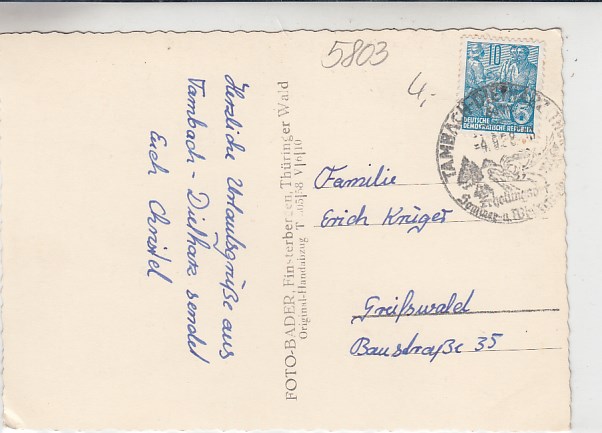 5803
4,-
Herzliche Urlaubsgrüße aus
Tambach-Dietharz sendet
Euch Christel
FOTO-BADER, Finsterbergen, Thüringer Wald
Original-Handabzug T 205/58 V/6/10
10
DEUTSCHE
DEMOKRATISCHE REPUBLIK
TAMBACH-DIETHARZ
-4.9.58
Erholungsort
Sommer- u.
Familie
Erich Krüger
Greifswald
Baustraße 35